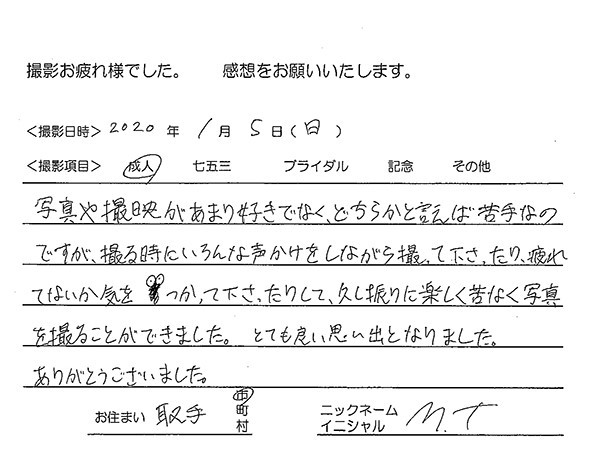 撮影お疲れ様でした。 感想をお願いいたします。
<撮影日時> 2020 年 1月 5日(日)
<撮影項目> 成人 七五三 ブライダル 記念 その他
写真や撮映があまり好きでなく、どちらかと言えば苦手なの
ですが、撮る時にいろんな声かけをしながら撮って下さったり、疲れ
てないか気をつかって下さったりして、久し振りに楽しく苦なく写真
を撮ることができました。とても良い思い出となりました。
ありがとうございました。
お住まい 取手 市町村 ニックネーム イニシャル M.T